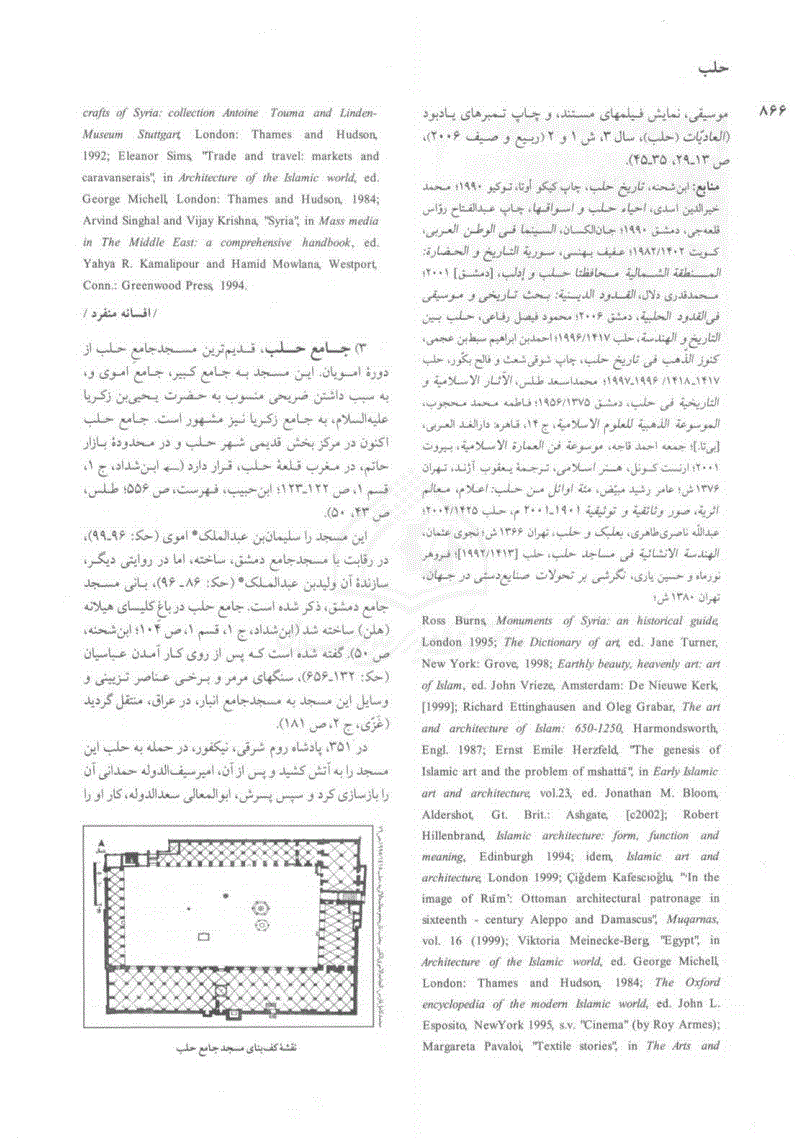 حلب
۸۶۶
موسیقی، نمایش فیلمهای مستند، و چاپ تمبرهای یادبود
(العادیّات (حلب)، سال ۳، ش ۱ و ۲ (ربیع و صیف ۲۰۰۶)،
ص ۱۳ـ۲۹، ۳۵ـ۴۵).
منابع: ابن‌شحنه، تاریخ حلب، چاپ کیکو أوتا، توکیو ۱۹۹۰؛ محمد
خیرالدین اسدی، احیاء حلب و اسواقها، چاپ عبدالفتاح روّاس
قلعه‌جی، دمشق ۱۹۹۰؛ جان‌الکسان، السینما فی الوطن العربی،
کویت ۱۹۸۲/۱۴۰۲؛ عفیف بهنسی، سوریة التاریخ و الحضارة:
المنطقة الشمالیة محافظتا حلب و إدلب، [دمشق] ۲۰۰۱؛
محمدقدری دلال، القدود الدینیة: بحث تاریخی و موسیقی
فی‌القدود الحلبیة، دمشق ۲۰۰۶؛ محمود فیصل رفاعی، حلب بین
التاریخ و الهندسة، حلب ۱۹۹۶/۱۴۱۷؛ احمدبن ابراهیم سبط‌بن عجمی،
کنوز الذّهب فی تاریخ حلب، چاپ شوقی شعث و فالح بکّور، حلب
۱۴۱۷ـ۱۴۱۸/ ۱۹۹۶ـ۱۹۹۷؛ محمداسعد طلس، الآثار الاسلامیة و
التاریخیة فی حلب، دمشق ۱۹۵۶/۱۳۷۵؛ فاطمه محمد محجوب،
الموسوعة الذهبیة للعلوم الاسلامیة، ج ۱۴، قاهره: دارالغد العربی،
[بی‌تا.]؛ جمعه احمد قاجه، موسوعة فن العمارة الاسلامیة، بیروت
۲۰۰۱؛ ارنست کونل، هنر اسلامی، ترجمهٔ یعقوب آژند، تهران
۱۳۷۶ ش؛ عامر رشید مبیّض، مئة اوائل من حلب: اعلام، معالم
اثریة، صور وثائقیة و توثیقیة ۱۹۰۱ـ۲۰۰۱ م، حلب ۲۰۰۴/۱۴۲۵؛
عبداللّه ناصری‌طاهری، بعلبک و حلب، تهران ۱۳۶۶ ش؛ نجوی عثمان،
الهندسة الانشائیة فی مساجد حلب، حلب [۱۹۹۲/۱۴۱۳]؛ فروهر
نورماه و حسین یاری، نگرشی بر تحولات صنایع‌دستی در جهان،
تهران ۱۳۸۰ ش؛
Ross Burns, Monuments of Syria: an historical guide,
London 1995; The Dictionary of art, ed. Jane Turner,
New York: Grove, 1998; Earthly beauty, heavenly art: art
of Islam, ed. John Vrieze, Amsterdam: De Nieuwe Kerk,
[1999]; Richard Ettinghausen and Oleg Grabar, The art
and architecture of Islam: 650-1250, Harmondsworth,
Engl. 1987; Ernst Emile Herzfeld, "The genesis of
Islamic art and the problem of mshattá", in Early Islamic
art and architecture, vol.23, ed. Jonathan M. Bloom,
Aldershot, Gt. Brit.: Ashgate, [c2002]; Robert
Hillenbrand, Islamic architecture: form, function and
meaning, Edinburgh 1994; idem, Islamic art and
architecture, London 1999; Çiğdem Kafescıoğlu, "'In the
image of Rūm': Ottoman architectural patronage in
sixteenth - century Aleppo and Damascus", Muqarnas,
vol. 16 (1999); Viktoria Meinecke-Berg, "Egypt", in
Architecture of the Islamic world, ed. George Michell,
London: Thames and Hudson, 1984; The Oxford
encyclopedia of the modern Islamic world, ed. John L.
Esposito, NewYork 1995, s.v. "Cinema" (by Roy Armes);
Margareta Pavaloi, "Textile stories", in The Arts and
crafts of Syria: collection Antoine Touma and Linden-
Museum Stuttgart, London: Thames and Hudson,
1992; Eleanor Sims, "Trade and travel: markets and
caravanserais", in Architecture of the Islamic world, ed.
George Michell, London: Thames and Hudson, 1984;
Arvind Singhal and Vijay Krishna, "Syria", in Mass media
in The Middle East: a comprehensive handbook, ed.
Yahya R. Kamalipour and Hamid Mowlana, Westport,
Conn.: Greenwood Press, 1994.
/ افسانه منفرد /
۳) جامع حلب، قدیم‌ترین مسجدجامع حلب از
دورهٔ امویان. این مسجد به جامع کبیر، جامع اموی و،
به سبب داشتن ضریحی منسوب به حضرت یحیی‌بن زکریا
علیه‌السلام، به جامع زکریا نیز مشهور است. جامع حلب
اکنون در مرکز بخش قدیمی شهر حلب و در محدودهٔ بازار
حاتم، در مغرب قلعهٔ حلب، قرار دارد (← ابن‌شداد، ج ۱،
قسم ۱، ص ۱۲۲ـ۱۲۳؛ ابن‌حبیب، فهرست، ص ۵۵۶؛ طلس،
ص ۴۳، ۵۰).
این مسجد را سلیمان‌بن عبدالملک* اموی (حک: ۹۶ـ۹۹)،
در رقابت با مسجدجامع دمشق، ساخته، اما در روایتی دیگر،
سازندهٔ آن ولیدبن عبدالملک* (حک: ۸۶ ـ ۹۶)، بانی مسجد
جامع دمشق، ذکر شده است. جامع حلب در باغ کلیسای هیلانه
(هلن) ساخته شد (ابن‌شداد، ج ۱، قسم ۱، ص ۱۰۴؛ ابن‌شحنه،
ص ۵۰). گفته شده است که پس از روی کار آمدن عباسیان
(حک: ۱۳۲ـ۶۵۶)، سنگهای مرمر و برخی عناصر تزیینی و
وسایل این مسجد به مسجدجامع انبار، در عراق، منتقل گردید
(غَزّی، ج ۲، ص ۱۸۱).
در ۳۵۱، پادشاه روم شرقی، نیکفور، در حمله به حلب این
مسجد را به آتش کشید و پس از آن، امیر سیف‌الدوله حمدانی آن
را بازسازی کرد و سپس پسرش، ابوالمعالی سعدالدوله، کار او را
نقشهٔ کف‌بنای مسجد جامع حلب